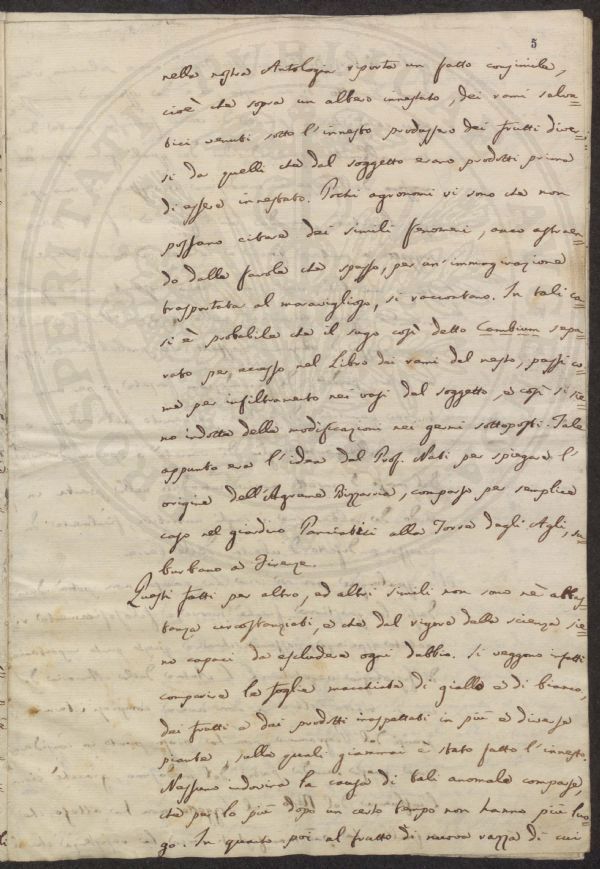 5
nella nostra Antologia riporta un fatto consimile,
cioè che sopra un albero innestato, dei rami salva=
tici venuti sotto l'innesto produssero dei frutti diver=
si da quelli che dal soggetto erano prodotti prima
di essere innestato. Pochi agronomi vi sono che non
possano citare dei simili fenomeni, anco astraen=
do dalle favole che spesso, per un'immaginazione
trasportata al maraviglioso, si raccontano. In tali ca=
si è probabile che il sugo così detto Cambium sepa=
rato per eccesso nel Libro dei rami del nesto, passi co=
me per infiltramento nei vasi del soggetto, e così si sie=
no indotte delle modificazioni nei germi sottoposti. Tale
appunto era l'idea del Prof. Nati per spiegare l'
origine dell'Agrume Bizzarria, comparso per semplice
caso nel giardino Panciatici alla Torre degli Agli, su=
burbano a Firenze.
Questi fatti per altro, ed altri simili non sono nè abbas=
tanza circostanziati, e che dal vigore della scienza sie=
no capaci da escludere ogni dubbio. Si veggono infatti
comparire le foglie macchiate di giallo e di bianco,
dei frutti e dei prodotti inaspettati in più e diverse
piante, sulle quali giammai è stato fatto l'innesto.
Nessuno indovina la causa di tali anomale comparse,
che per lo più dopo un certo tempo non hanno più luo=
go. In quanto poi al frutto di nuova razza di cui